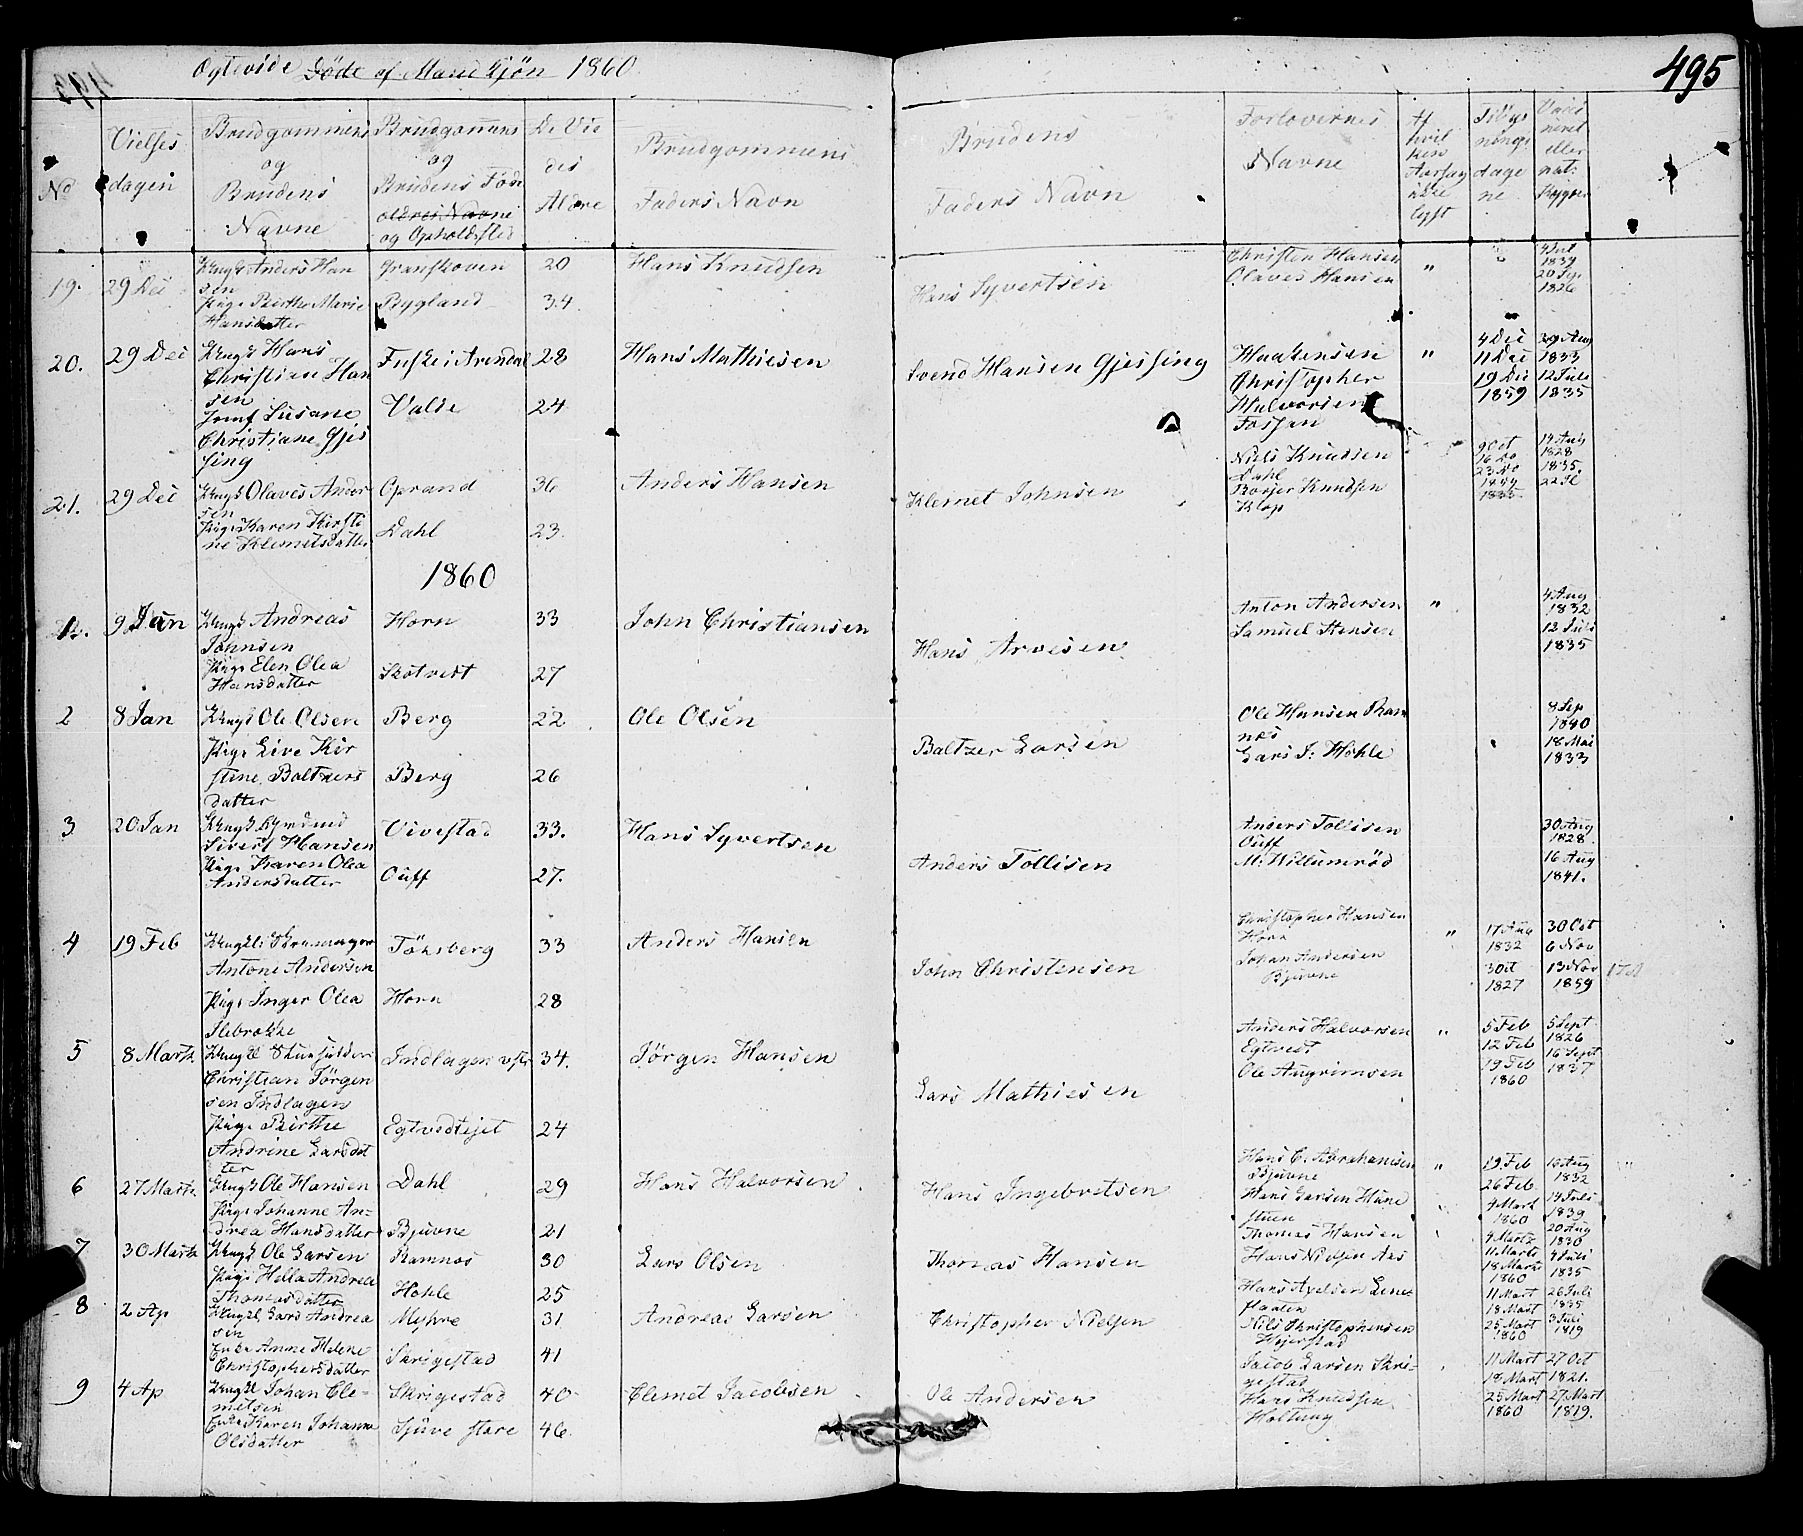 Ogteviede Döde af Mandkjön 1860
495
No
Vielses
dagen
Brudgommens
og
Brudens
Navne
Brudgommens
og
Brudens Föde
oldres Navne
og Opholdssted
De Vie
des
Aldre
Brudgommens
Faders Navn
Brudens
Faders Navn
Forlovernes
Navne
Af
hvil
ken
Aarsag
ikke
lyst
Tilbys
nings
dage
ne
Vacci
neret
eller
nat:
Kopper
19. 29 Dec
Ungk Anders Han
sen
Pige Berthe Marie
Hansdatter
Granskoven
Bygland
20
34
Hans Knudsen
Hans Syvertsen
Christen Hansen
Olaves Hansen
"
1839
1826
20. 29 Dec
Ungk Hans
Christian Han
sen
Jomf Susane
Christiane Gjes
sing
Valde
28
24
Hans Mathiesen
Svend Hansen Gjessing
Haakensen
Christopher
Halvorsen
Fossan
"
4 Dec
11 Dec
19 Dec
1859
29 Aug
1833
12 Juli
1835
21. 29 Dec
Ungk Olaves Ander
sen
Pige Karen Kirsti
ne Klemetsdatter
Oprand
Dahl
36
23.
Anders Hansen
Klemet Johnsen
Niels Knudsen
Dahl
Borjer Knudsen
Klop
9 Oct
16 Do
23 Do
14 Aug
1828
1835.
1860
1. 9 Jan
Ungk Andreas
Johnsen
Pige Elen Olea
Hansdatter
Horn
Skotvedt
33
27
John Christiansen
Hans Arvesen
Anton Andersen
Samuel Stensen
"
4 Aug
1832
12 Juli
1835
2 8 Jan
Ungk Ole Olsen
Pige Live Kir
stine Baltzers
datter
Berg
Berg
22
26
Ole Olsen
Baltzer Larsen
Ole Hansen Ram
nes
Lars J: Hohle
8 Sep
1840
18 Mai
1833
3 20 Jan
Sivert Hansen
Pige Karen Olea
Andersdatter
Vivestad
Ouff
33.
27.
Hans Syvertsen
Anders Tollisen
Anders Tollisen
Ouff
M: Hillumröd
30 Aug
1828.
16 Aug
1841.
4 19 Feb
Antone Andersen
Pige Inger Olea
Ilebrække
Tönsberg
Horn
33
28
Anders Hansen
John Christensen
Christopher Hansen
Horn
Johan Andersen
Bjuvne
"
17 Aug
1832
3 Oct
1827
30 Oct
6 Nov
13 Nov
1859
5 8 Marts
Christian Jörgen
sen Indlagen
Pige Berthe
Andrine Larsdat
ter
Indlagen
Egtvedtejet
34.
24
Jörgen Hansen
Lars Mathiesen
Anders Halvorsen
Egtvedt
Ole Angrimsen
"
5 Feb
12 Feb
19 Feb
1860
5 Sept
1826
16 Sept
1837
6 27 Marts
Ungk Ole Hansen
Pige Johanne An-
drea Hansdatter
Dahl
Bjuvne
29
21
Hans Halvorsen
Hans Ingebretsen
Hans C. Abrahamsen
Bjuvne
Hans Larsen Hane
stuen
"
19 Feb
26 Feb
4 Mart
1860
1832
14 Juli
1839
7 30 Marts
Ungk Ole Larsen
Pige Hella Andrea
Thomasdatter
Ramnes
Hohle
30
25
Lars Olsen
Thomas Hansen
Thomas Hansen
Hans Nielsen Aas
4 Marts
11 Marts
18 Marts
1860
20 Aug
1830
4 Juli
1835
8 2 Ap
Ungk Lars Andrea
sen
Enke Anne Helene
Christophersdatter
Myhre
Skrigestad
31
41
Andreas Larsen
Christopher Nielsen
Nils Christophersen
Hojerstad
11 Mart
18 Mart
25 Mart
1860
26 Juli
1835
3 Juli
1819
9 4 Ap
Ungk Johan Cle-
metsen
Enke Karen Johanne
Olsdatter
Skrigestad
40
46
Clemet Jacobsen
Ole Andersen
Jacob Larsen Skri-
gestad
Hans Knudsen
Holtung
11 Mart
18 Mart
25 Mart
1860
27 Oct
1821.
27 Mart
1819.